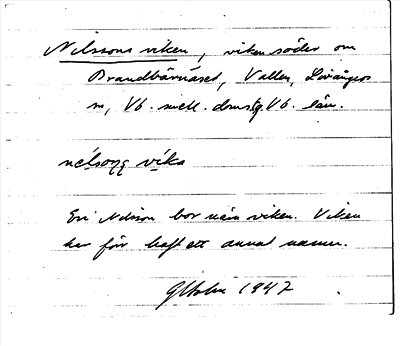 Nilssons viken, viken söder om
Brandskärnäset, Vallen, Lövångers
sn, Vb. mell. doms. Vb. län.
vika
En Nilsson bor nära viken. Viken
har förr haft ett annat namn.
1947